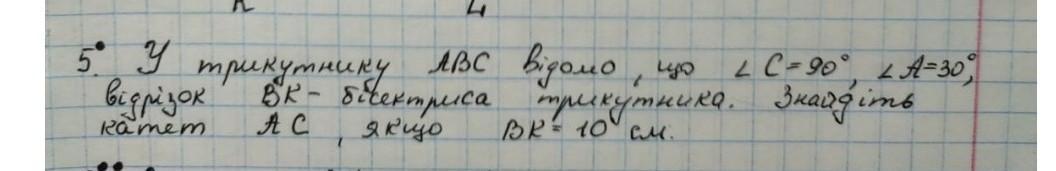 5.° У трикутнику ABC відомо, що ∠C=90°, ∠A=30°,
відрізок BK – бісектриса трикутника. Знайдіть
катет AC, якщо BK = 10 см.